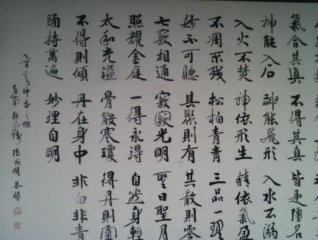 氣合其真 不得其真 皆是彊名
神能入石 神能飛形 入水不溺
入火不焚 神依形生 精依氣盈
不凋不殘 松柏青青 三品一理
妙不可聽 其聚則有 其散則零
七竅相通 竅竅光明 聖日聖月
照耀金庭 一得永得 自然身輕
太和充溢 骨散寒瓊 得丹則靈
不得則傾 丹在身中 非白非青
誦持萬遍 妙理自明